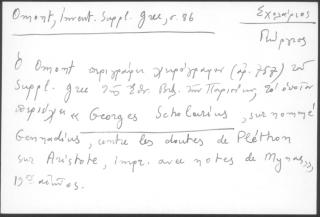 Omont, Invent. Suppl. grec, σ. 86
Σχολάριος
Γεώργιος
Ὁ Omont περιγράφει χειρόγραφον (ἀρ. 757) τοῦ
Suppl. grec τῆς Ἐθν. Βιβ. τῶν Παρισίων, τὸ ὁποῖον
περιέχει « Georges Scholarius, surnommé
Gennadius, contre les doutes de Pléthon
sur Aristote, impr. avec notes de Mynas »,
19ου αἰῶνος.